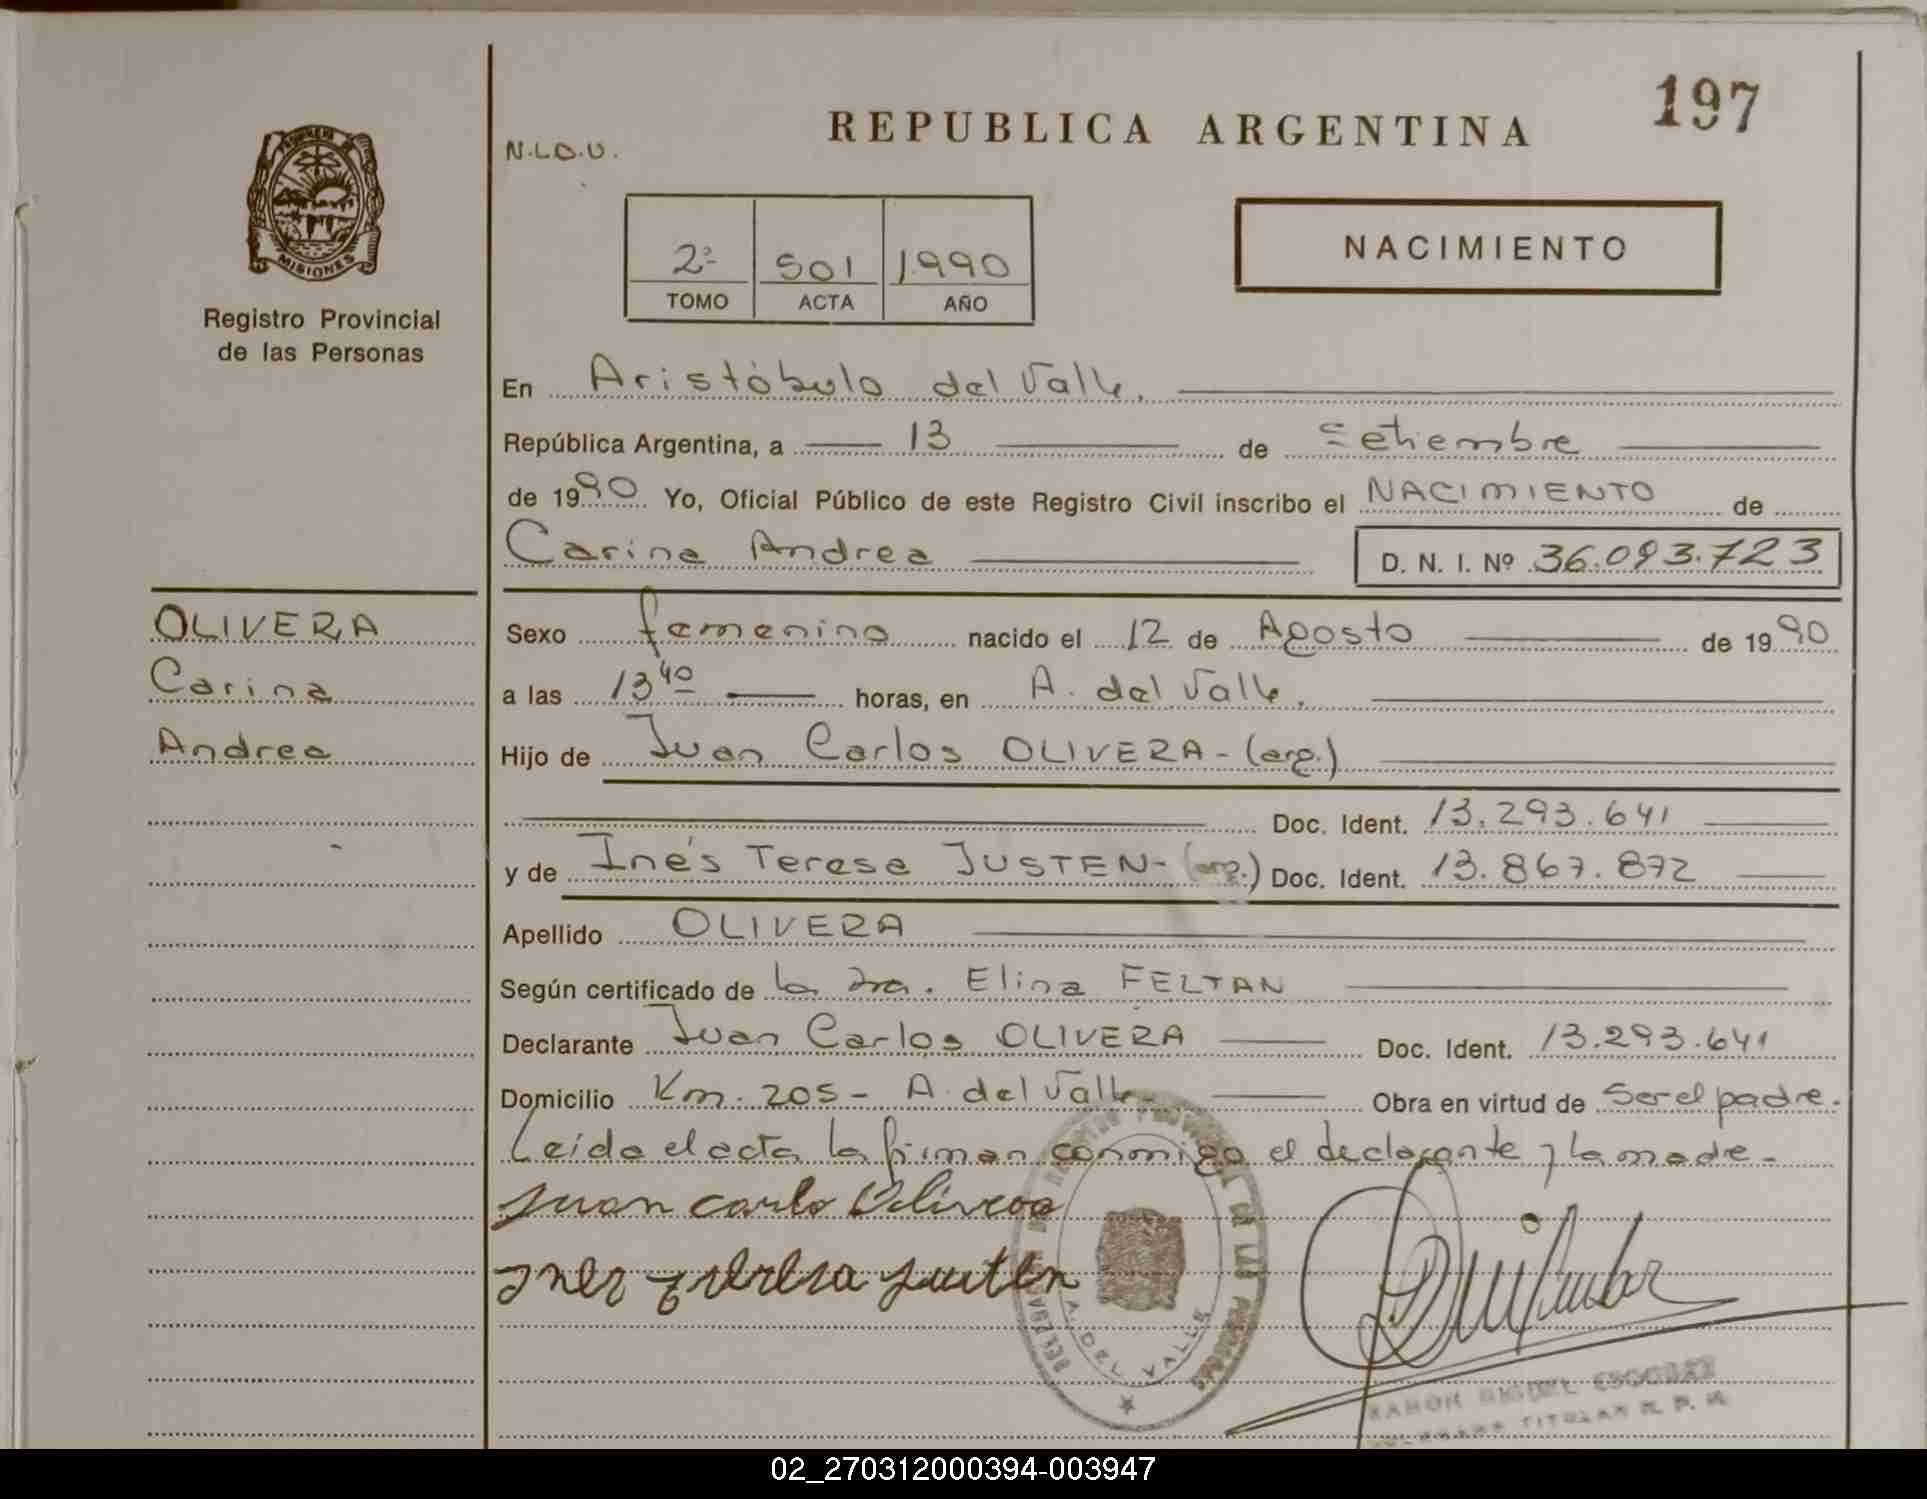 197
REPUBLICA ARGENTINA
N.I.O.U.
MISIONES
Registro Provincial
de las Personas
2º 501 1990
TOMO ACTA AÑO
NACIMIENTO
En Aristóbulo del Valle,
República Argentina, a 13 de Setiembre
de 1990 Yo, Oficial Público de este Registro Civil inscribo el NACIMIENTO de
Carina Andrea D. N. I. Nº 36.093.723
OLIVERA
Carina
Andrea
Sexo femenino nacido el 12 de Agosto de 1990
a las 13 40 horas, en A. del Valle,
Hijo de Juan Carlos OLIVERA - (arg.)
Doc. Ident. 13.293.641
y de Inés Teresa JUSTEN - (arg.) Doc. Ident. 13.867.872
Apellido OLIVERA
Según certificado de la Dra. Elina FELTAN
Declarante Juan Carlos OLIVERA Doc. Ident. 13.293.641
Domicilio Km. 205 - A. del Valle Obra en virtud de ser el padre.
Leída el acta la firman conmigo el declarante y la madre -
Juan Carlo Olivera
Ines Teresa Justen
A. DEL VALLE
RAMON MIGUEL ESCOBAR
TITULAR R. P.
02_270312000394-003947